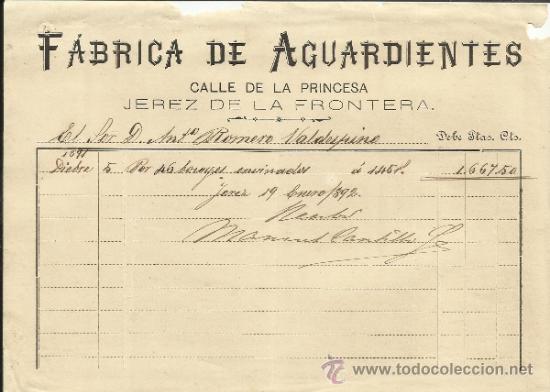 FÁBRICA DE AGUARDIENTES
CALLE DE LA PRINCESA
JEREZ DE LA FRONTERA.
El Sor. D. Anto. Romero Valdespino Debe Ptas. Cts.
1891
Dicbre 5 Por 46 bocoyes envinados á 145 1.667.50
Jerez 19 Enero/892.
Recibí
Manuel Cantillo
todocoleccion
www.todocoleccion.net